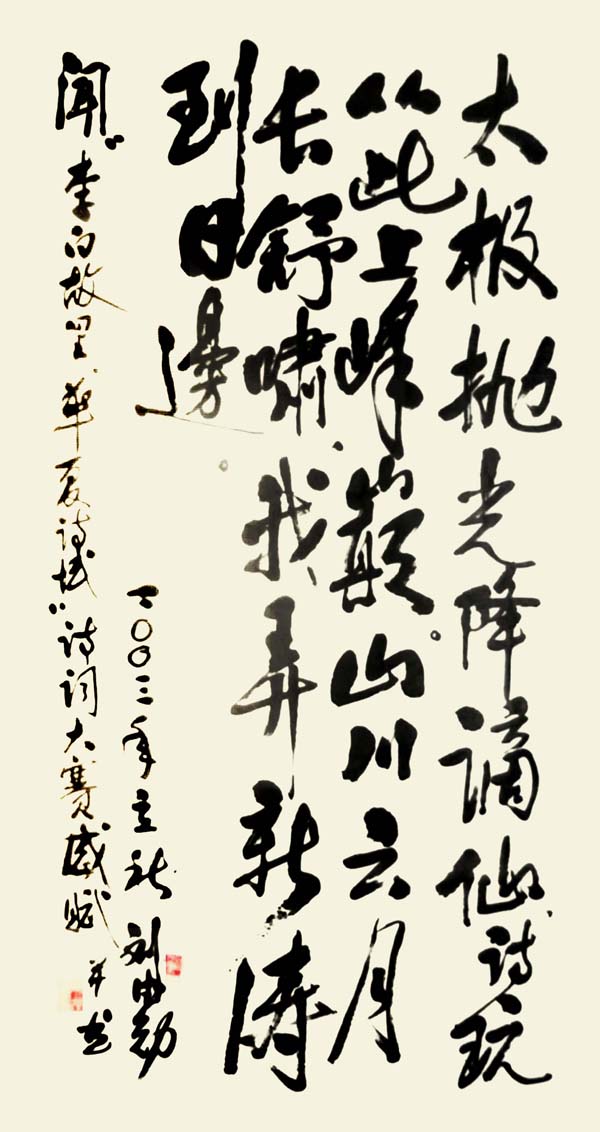 太极抛光降谪仙、诗玩
从此上峰巅。山川云月
长舒嘯、我弄新涛
到日邊。
二〇〇三年立秋 刘
闻“李白故里、华夏诗城”诗词大赛感赋 并书